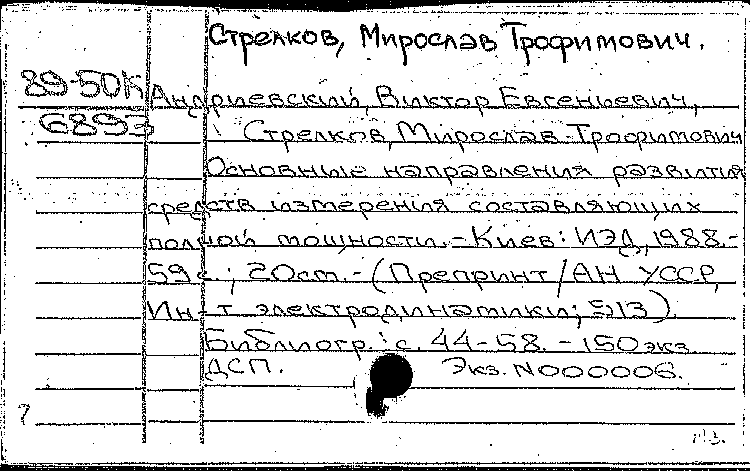 Стрелков, Мирослав Трофимович.
89-50К
6893
Андриевский, Виктор Евгеньевич,
Стрелков, Мирослав Трофимович
Основные направления развития
средств измерения составляющих
полной мощности. - Киев: ИЭД, 1988.-
59 с.; 20 см. - (Препринт / АН УССР,
Ин-т электродинамики; 513)
Библиогр.: с. 44-58. - 150 экз.
ДСП. Экз. N000006.
7